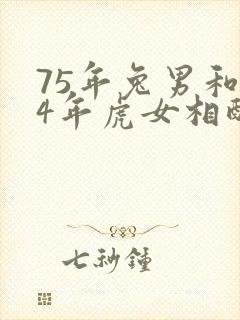 75年兔男和
4年虎女相
七秒鐘